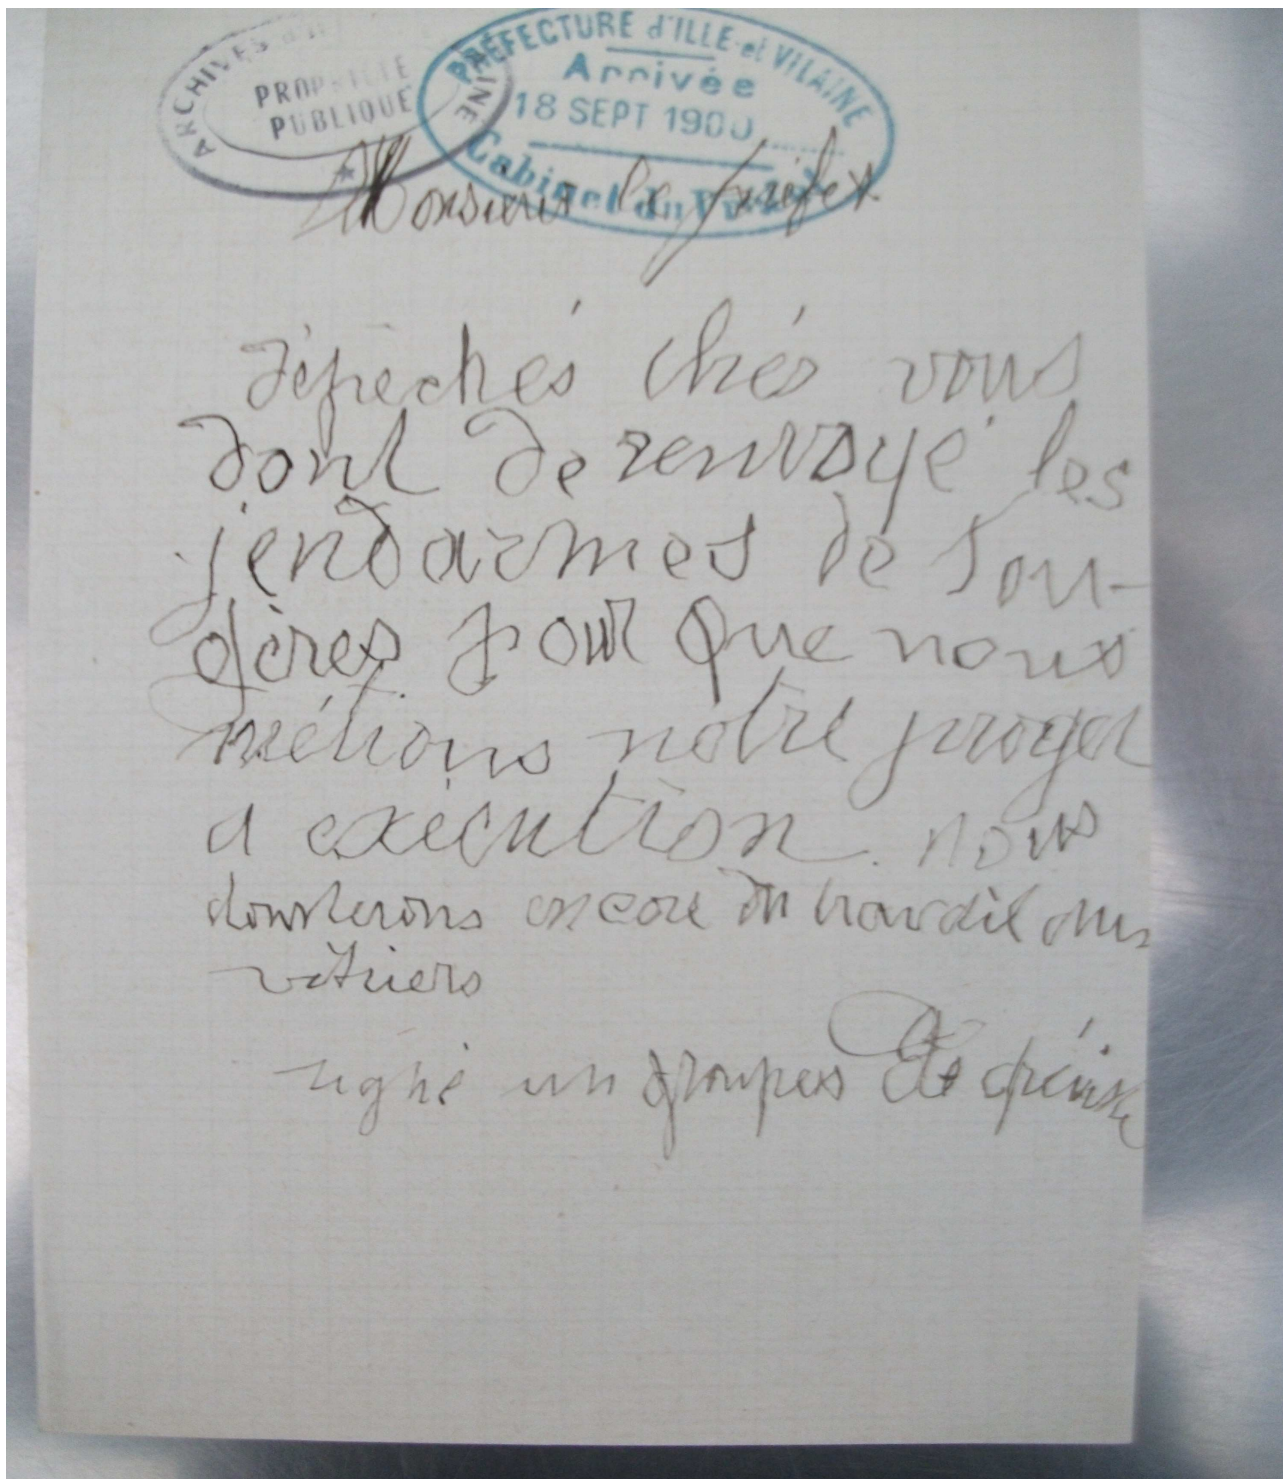 ARCHIVES D'I
INE
PROPRIETE
PUBLIQUE
PRÉFECTURE d'ILLE-et-VILAINE
Arrivée
18 SEPT 1900
Cabinet du Préfet
Monsieur le préfex
dépêchés chés vous
dont de renvoyé les
jendarmes de Fou-
gères pour que nous
métions notre proget
a exécution. nous
donnerons encore du travail aux
vitriers
signé un groupes de